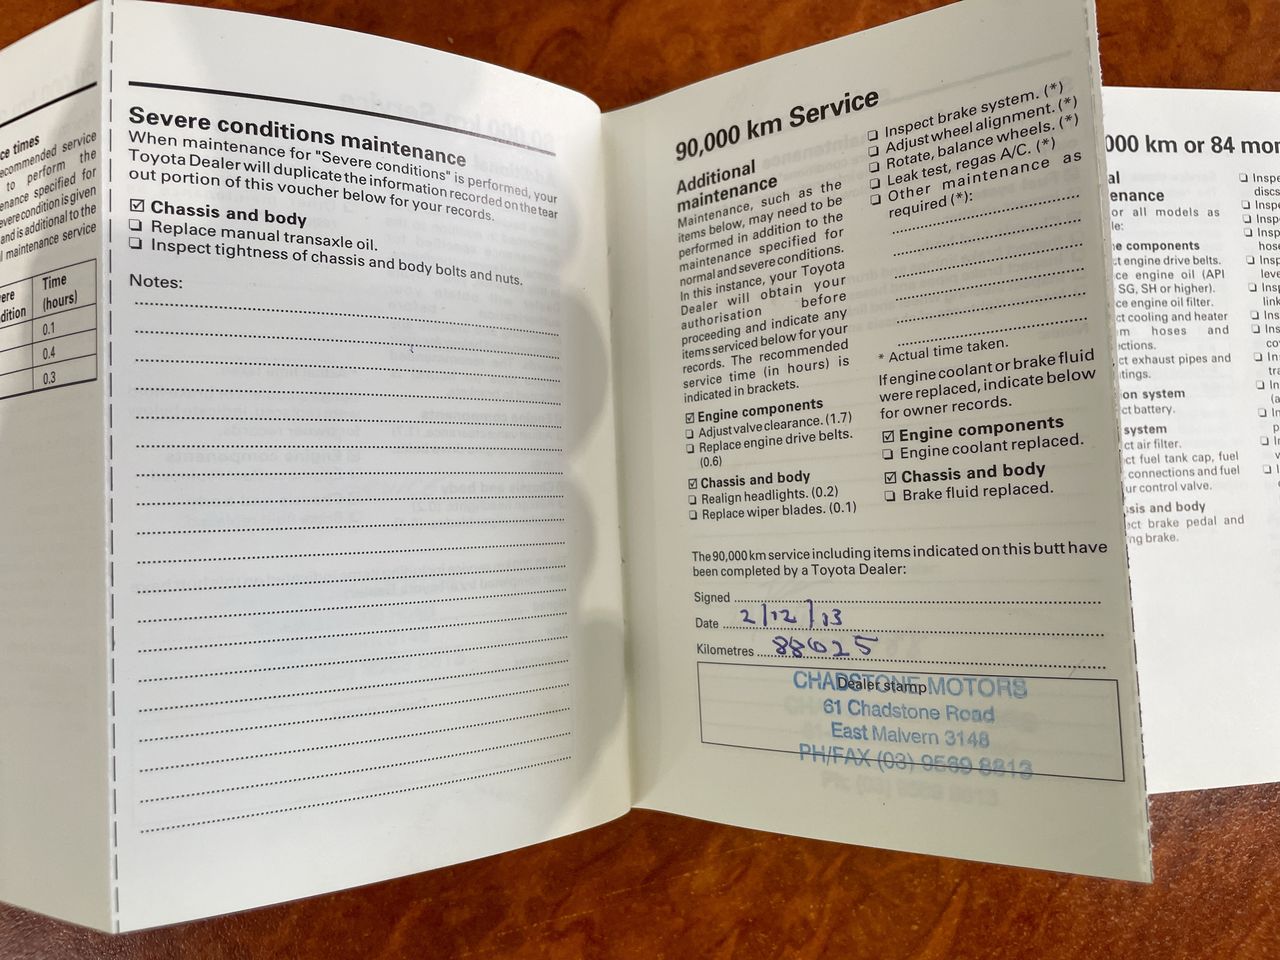 ce times
ecommended service
to perform the
nance specified for
evere condition is given
and is additional to the
l maintenance service
ere
dition
Time
(hours)
0.1
0.4
0.3
Severe conditions maintenance
When maintenance for "Severe conditions" is performed, your
Toyota Dealer will duplicate the information recorded on the tear
out portion of this voucher below for your records.
☑ Chassis and body
❏ Replace manual transaxle oil.
❏ Inspect tightness of chassis and body bolts and nuts.
Notes:
90,000 km Service
Additional
maintenance
Maintenance, such as the
items below, may need to be
performed in addition to the
maintenance specified for
normal and severe conditions.
In this instance, your Toyota
Dealer will obtain your
authorisation before
proceeding and indicate any
items serviced below for your
records. The recommended
service time (in hours) is
indicated in brackets.
☑ Engine components
❏ Adjust valve clearance. (1.7)
❏ Replace engine drive belts.
(0.6)
☑ Chassis and body
❏ Realign headlights. (0.2)
❏ Replace wiper blades. (0.1)
❏ Inspect brake system. (*)
❏ Adjust wheel alignment. (*)
❏ Rotate, balance wheels. (*)
❏ Leak test, regas A/C. (*)
❏ Other maintenance as
required (*):
* Actual time taken.
If engine coolant or brake fluid
were replaced, indicate below
for owner records.
☑ Engine components
❏ Engine coolant replaced.
☑ Chassis and body
❏ Brake fluid replaced.
The 90,000 km service including items indicated on this butt have
been completed by a Toyota Dealer:
Signed
Date 2/12/13
Kilometres 88025
Dealer stamp
CHADSTONE MOTORS
61 Chadstone Road
East Malvern 3148
PH/FAX (03) 9569 8813
000 km or 84 mon
al
enance
or all models as
le:
e components
ct engine drive belts.
ce engine oil (API
SG, SH or higher).
ce engine oil filter.
ct cooling and heater
m hoses and
ections.
ct exhaust pipes and
tings.
on system
ct battery.
system
ct air filter.
ct fuel tank cap, fuel
connections and fuel
ur control valve.
sis and body
ect brake pedal and
ng brake.
❏ Inspe
discs
❏ Inspe
❏ Inspe
❏ Inspe
hose
❏ Insp
leve
❏ Insp
link
❏ Ins
❏ Ins
co
❏ In
tra
❏ In
(a